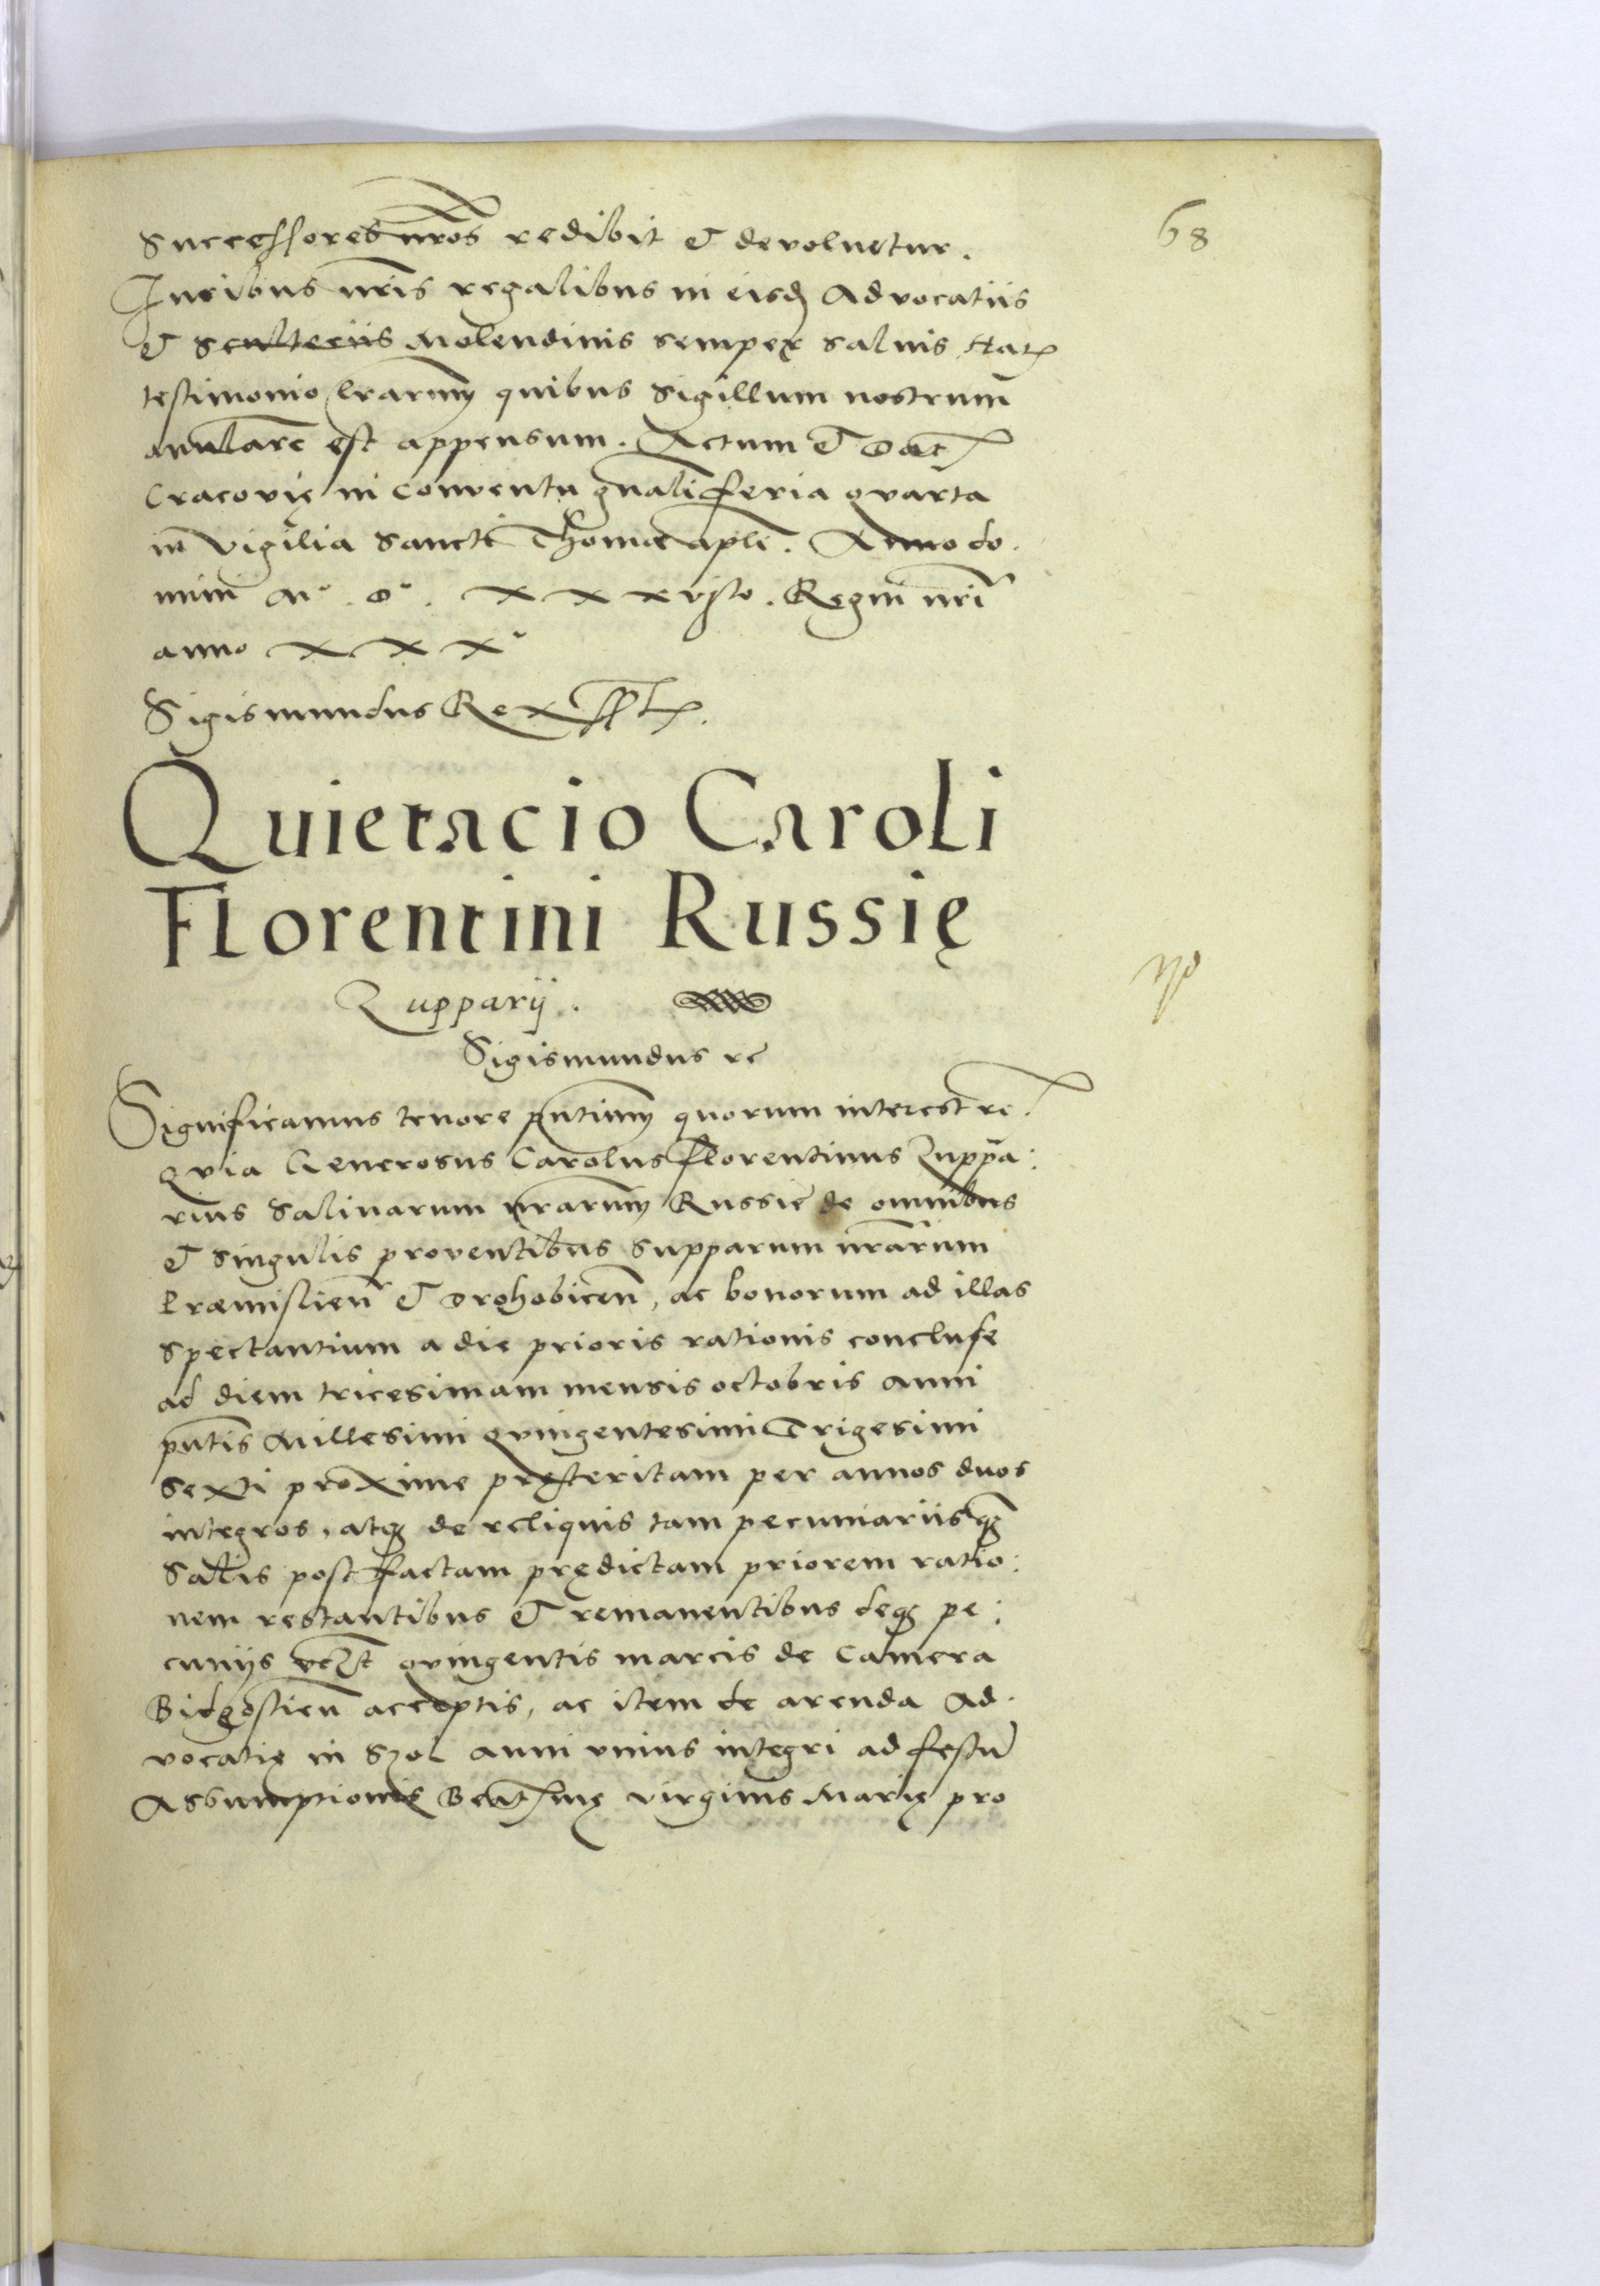 68
Successores nros redibit et devoluetur.
Iuribus nris regalibus in eisd Advocatiis
et Sculteciis Molendinis semper saluis. Har
testimonio lrarum quibus Sigillum nostrum
anulare est appensum. Actum et Dat
Cracovię in conventu gnali feria qvarta
in vigilia Sancti Thomae apli. Anno do.
mini Mº. Dº. xxxvjto. Regni nri
anno xxxº
Sigismundus Rex sst.
Quietacio Caroli
Florentini Russię
Zupparij.
Sigismundus rc
Significamus tenore pntium quorum interest rc.
Qvia Generosus Carolus florentinus Zuppa:
rius Salinarum nrarum Russie de omnibus
et singulis proventibus Supparum nrarum
Præmislien et Drohobicen, ac bonorum ad illas
spectantium a die prioris rationis concluse
ad diem tricesimam mensis octobris anni
pntis Millesimi qvingentesimi Trigesimi
Sexti proxime pręteritam per annos duos
integros, atq de reliquis tam pecuniariis q
Salis post factam prędictam priorem ratio:
nem restantibus et remanentibus deq pe:
cunijs vczt qvingentis marcis de Camera
Bidgostien acceptis, ac item de arenda Ad.
vocatię in Szol anni vnius integri ad festu
Assumptionis Beatmę virginis Marię pro